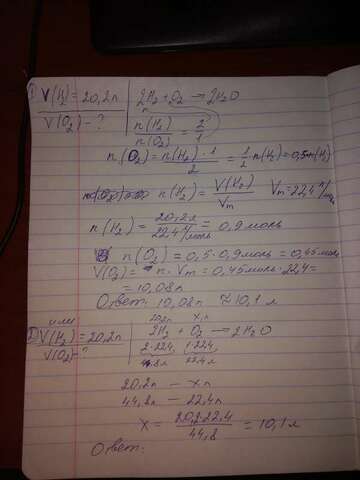 1) V(H₂)=20,2л
V(O₂)-?
2H₂+O₂ → 2H₂O
n(H₂)/n(O₂) = 2/1
n(O₂)= n(H₂)·1/2 = 1/2·n(H₂)=0,5·n(H₂)
n(H₂) = V(H₂)/Vm Vm=22,4 л/моль
n(H₂)= 20,2л/22,4 л/моль = 0,9 моль
n(O₂)= 0,5·0,9моль=0,45моль
V(O₂)= n·Vm=0,45моль·22,4=
=10,08л
Ответ: 10,08л ≈10,1л
или
2) V(H₂)=20,2л
V(O₂)-?
20,2л x л
2H₂ + O₂ → 2H₂O
2·22,4 1·22,4
44,8л 22,4л
20,2л — xл
44,8л — 22,4л
x = 20,2·22,4/44,8 = 10,1л
Ответ: